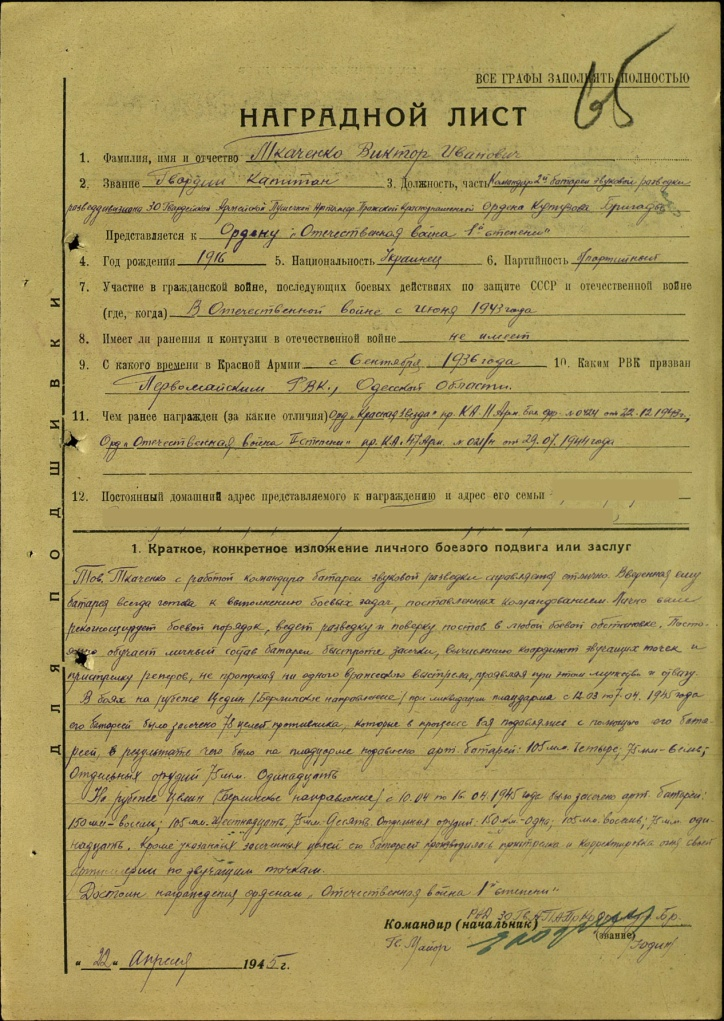 65
ВСЕ ГРАФЫ ЗАПОЛНЯТЬ ПОЛНОСТЬЮ
НАГРАДНОЙ ЛИСТ
1. Фамилия, имя и отчество Ткаченко Виктор Иванович
2. Звание Гвардии Капитан 3. Должность, часть Командир 2й батареи звуковой разведки
разведдивизиона 30 Гвардейской Армейской Пушечной Артиллер. Краснознаменной Ордена Кутузова Бригады
Представляется к Ордену „Отечественная война 1й степени"
4. Год рождения 1916 5. Национальность Украинец 6. Партийность
7. Участие в гражданской войне, последующих боевых действиях по защите СССР и отечественной войне
(где, когда) В Отечественной войне с июня 1943 года
8. Имеет ли ранения и контузии в отечественной войне не имеет
9. С какого времени в Красной Армии с Сентября 1936 года 10. Каким РВК призван
Первомайским РВК, Одесской Области.
11. Чем ранее награжден (за какие отличия) Орд „Красная Звезда" пр. КА 11 Арм. № 0424 от 22.12.1943г.,
Орд „Отечественная война II степени" пр. КА 47 Арм. № 021/н от 29.07.1944 года
12. Постоянный домашний адрес представляемого к награждению и адрес его семьи
1. Краткое, конкретное изложение личного боевого подвига или заслуг
Тов. Ткаченко с работой командира батареи звуковой разведки справляется отлично. Вверенная ему
батарея всегда готова к выполнению боевых задач, поставленных командованием. Лично сам
рекогносцирует боевой порядок, ведет разведку и поверку постов в любой боевой обстановке. Посто-
янно обучает личный состав батареи быстроте засечки, вычислению координат звучащих точек и
пристрелку реперов, не пропуская ни одного вражеского выстрела, проявляя при этом мужество и отвагу.
В боях на рубеже Цедин (Берлинское направление) при ликвидации плацдарма с 12.03 по 7.04.1945 года
его батареей было засечено 73 целей противника, которые в процессе боя подавлялись с помощью его бата-
рей, в результате чего было на плацдарме подавлено арт. батарей: 105 мм. Четыре; 75 мм - семь;
Отдельных орудий 75 мм. Одинадцать
На рубеже (Берлинское направление) с 10.04 по 16.04.1945 года было засечено арт. батарей:
150 мм - восемь; 105 мм. шестнадцать, 75 мм. Десять. Отдельных орудий: 150 мм - одно; 105 мм. восемь; 75 мм. оди-
надцать. Кроме указаний засеченных целей его батареей производилась пристрелка и корректировка огня своей
артиллерии по звучащим точкам.
Достоин награждения орденом „Отечественная война 1й степени"
Командир (начальник)
(звание)
Гв. Майор Годик
„22" Апреля 1945 г.
ДЛЯ ПОДШИВКИ